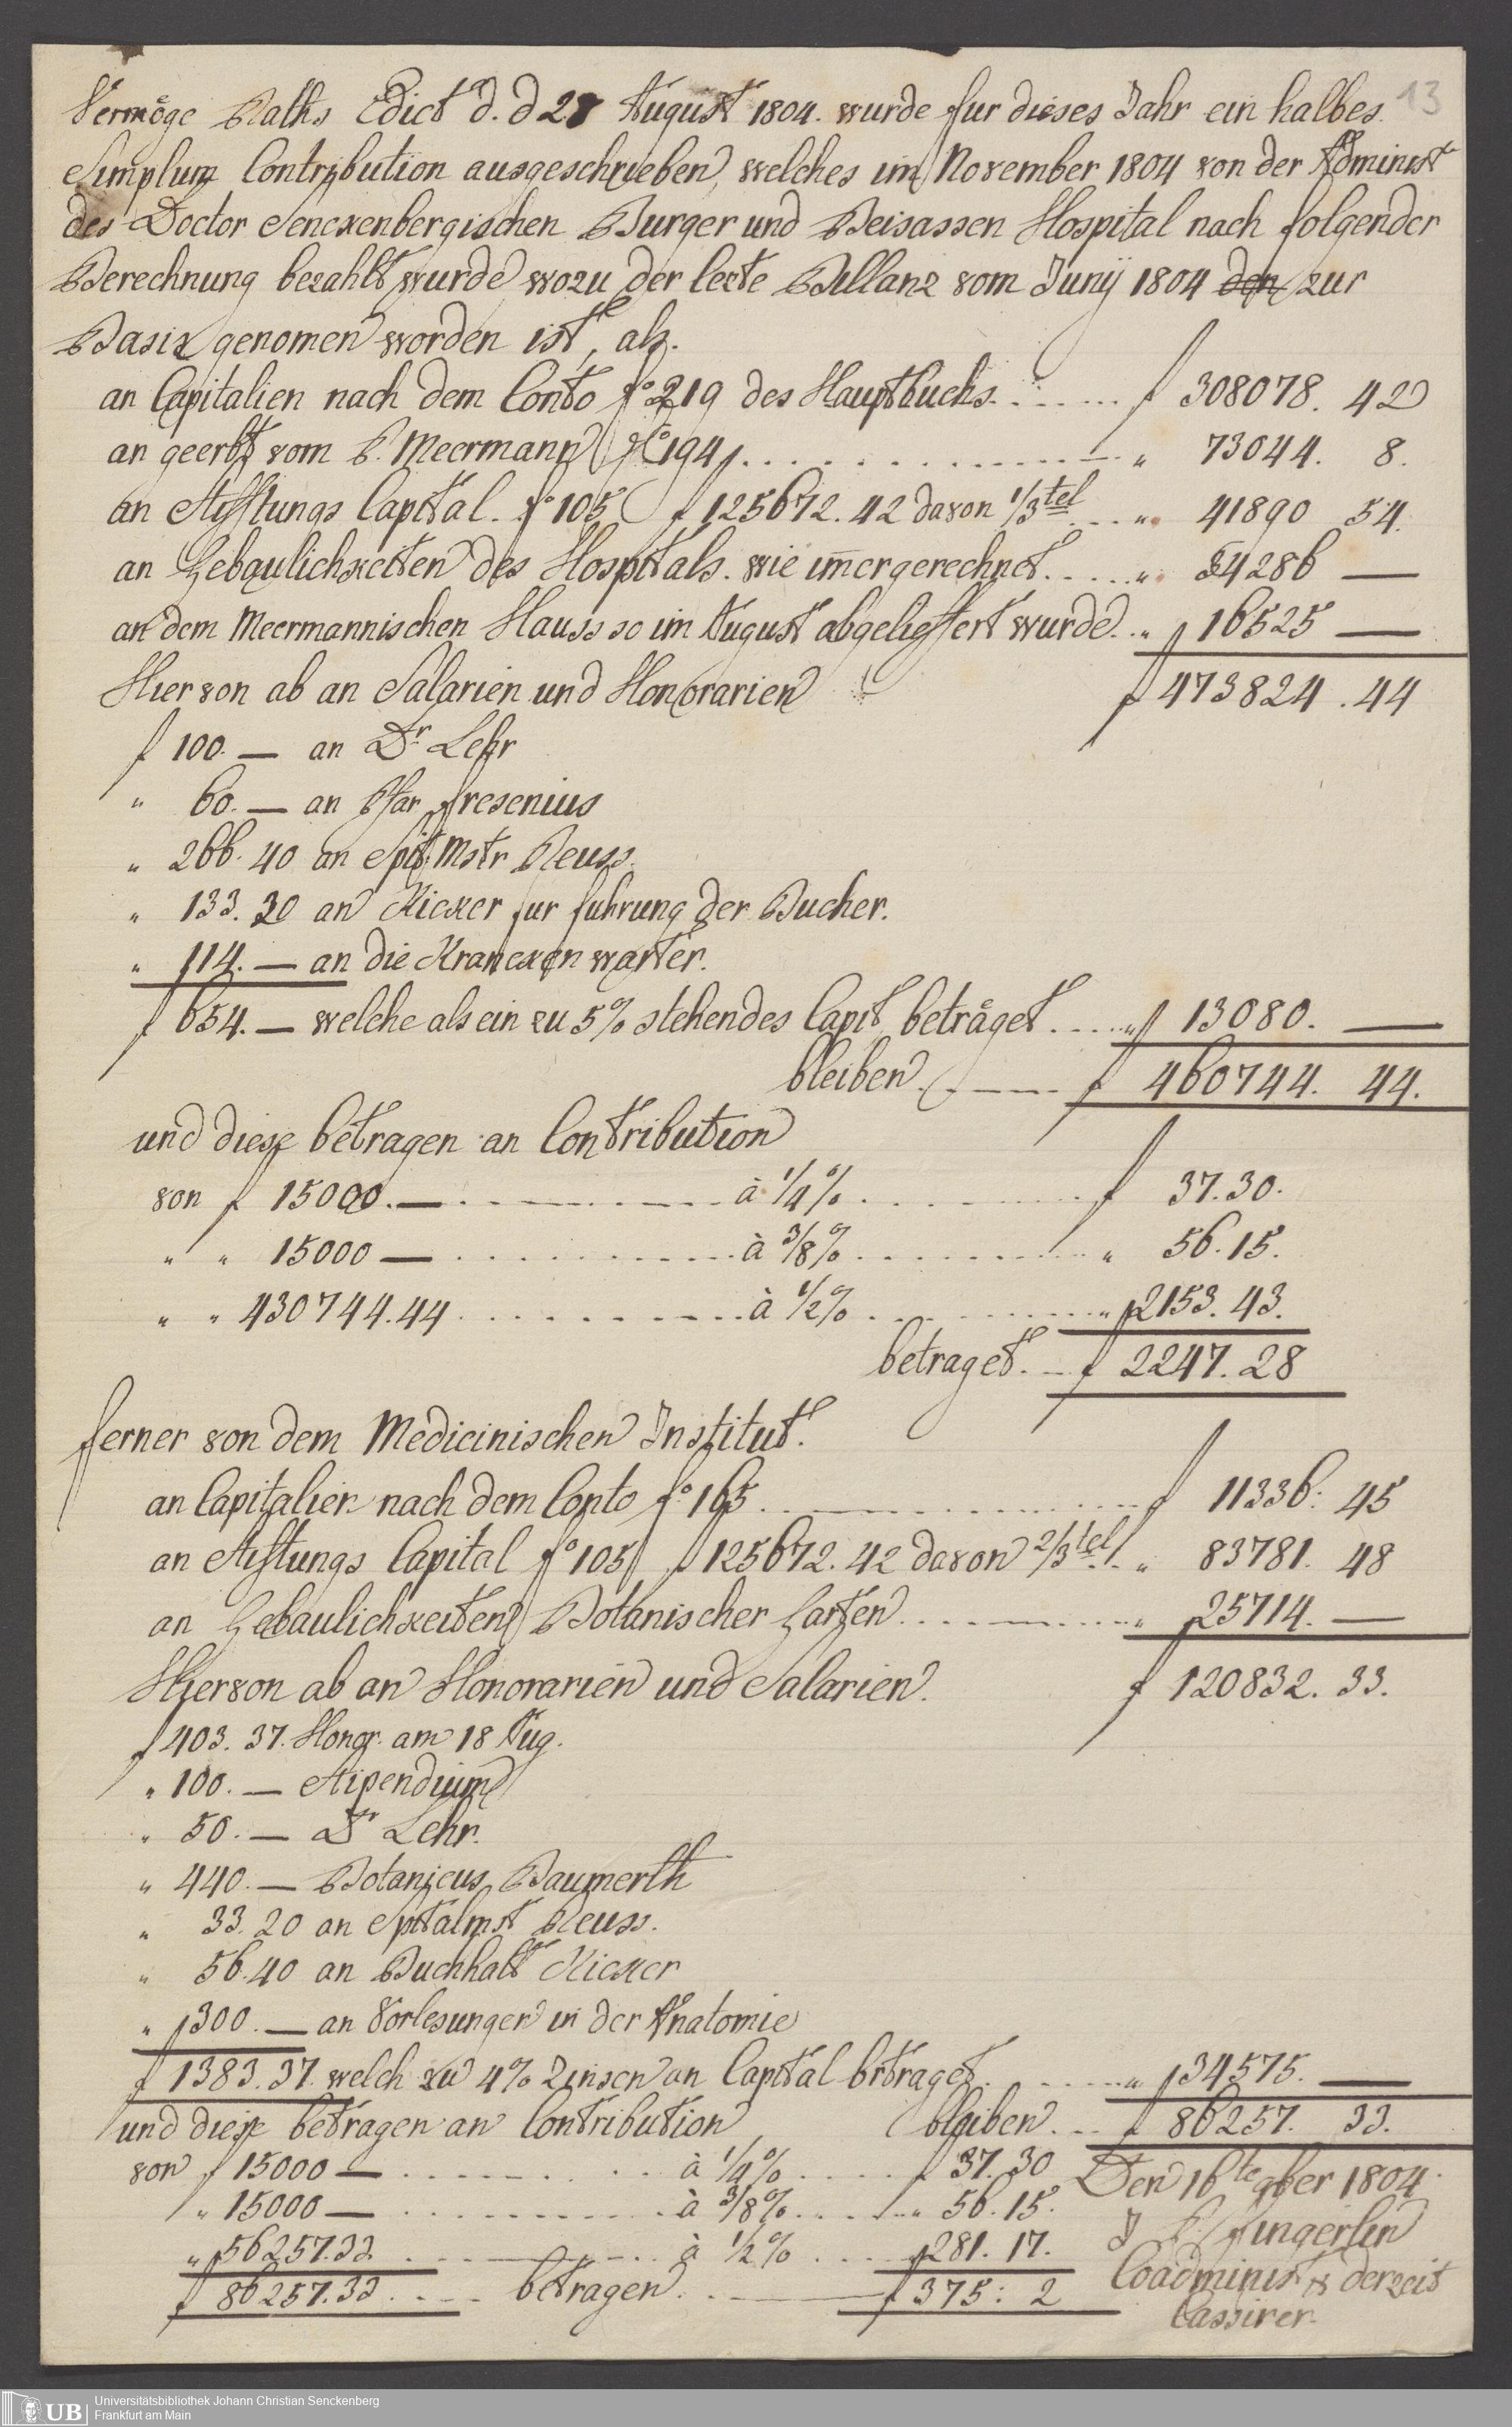 13
Vermöge Raths Edict d. d 28 August 1804. wurde fur dieses Jahr ein halbes
Simplum Contribution ausgeschrieben, welches im November 1804 von der Administ
des Doctor Senckenbergischen Burger und Beisassen Hospital nach folgender
Berechnung bezahlt wurde wozu der lezte Billanz vom Junij 1804 den zur
Basis genomen worden ist, als.
an Capitalien nach dem Conto fo 219 des Hauptbuchs. . . . . . f 308078. 42
an geerbt vom B. Meermann fo 194 . . . . . . . . . . . . . " 73044. 8.
an Stifftungs Capital. fo 105 f 125672. 42 davon 1/3tel . . . " 41890 54.
an Gebaulichkeiten des Hospitals. wie imer gerechnet. . . . . " 34286 —
an dem Meermannischen Hauss so im August abgelieffert wurde. . " 16525 —
Hiervon ab an Salarien und Honorarien f 473824. 44
f 100. — an Dr. Lehr
" 60. — an Pfar fresenius
" 266. 40 an Spit. Mstr Reuss.
" 133. 20 an Kicker fur fuhrung der Bucher.
" 114. — an die Krancken warter.
f 654. — welche als ein zu 5% stehendes Capit beträget . . . . " f 13080. —
bleiben . — — f 460744. 44.
und diese betragen an Contribution
von f 15000. — . . . . . . . à 1/4 % . . . . . . . f 37. 30.
" " 15000 — . . . . . . . à 3/8 % . . . . . . . " 56. 15.
" " 430744. 44 . . . . . . . à 1/2 % . . . . . . . " 2153. 43.
betraget. — f 2247. 28
ferner von dem Medicinischen Institut.
an Capitalien nach dem Conto fo 165 . . . . . . . . . . f 11336: 45
an Stiftungs Capital fo 105 f 125672. 42 davon 2/3tel . . " 83781. 48
an Gebaulichkeiten Botanischer Garten . . . . . . . " 25714. —
Hiervon ab an Honorarien und Salarien. f 120832. 33.
f 403. 37. Honor. am 18 Aug.
" 100. — Stipendium
" 50. — Dr Lehr.
" 440. — Botanicus Baumerth
" 33. 20 an Spitalmst Reuss.
" 56. 40 an Buchhalt Kicker
" 300. — an Vorlesungen in der Anatomie
f 1383. 37. welch zu 4% Zinsen an Capital betraget. . . . . " 34575. —
und diese betragen an Contribution bleiben . . . f 86257. 33.
von f 15000 — . . . . . . . à 1/4 % . . . . . f 37. 30
" 15000 — . . . . . . . à 3/8 % . . . . . " 56. 15.
" 56257. 33 . . . . . . . à 1/2 % . . . . . 281. 17.
f 86257. 33 . . . . betragen. . — f 375: 2
Den 16te 9ber 1804
J C fingerlin
Coadminist & derzeit
Cassirer
UB
Universitätsbibliothek Johann Christian Senckenberg
Frankfurt am Main